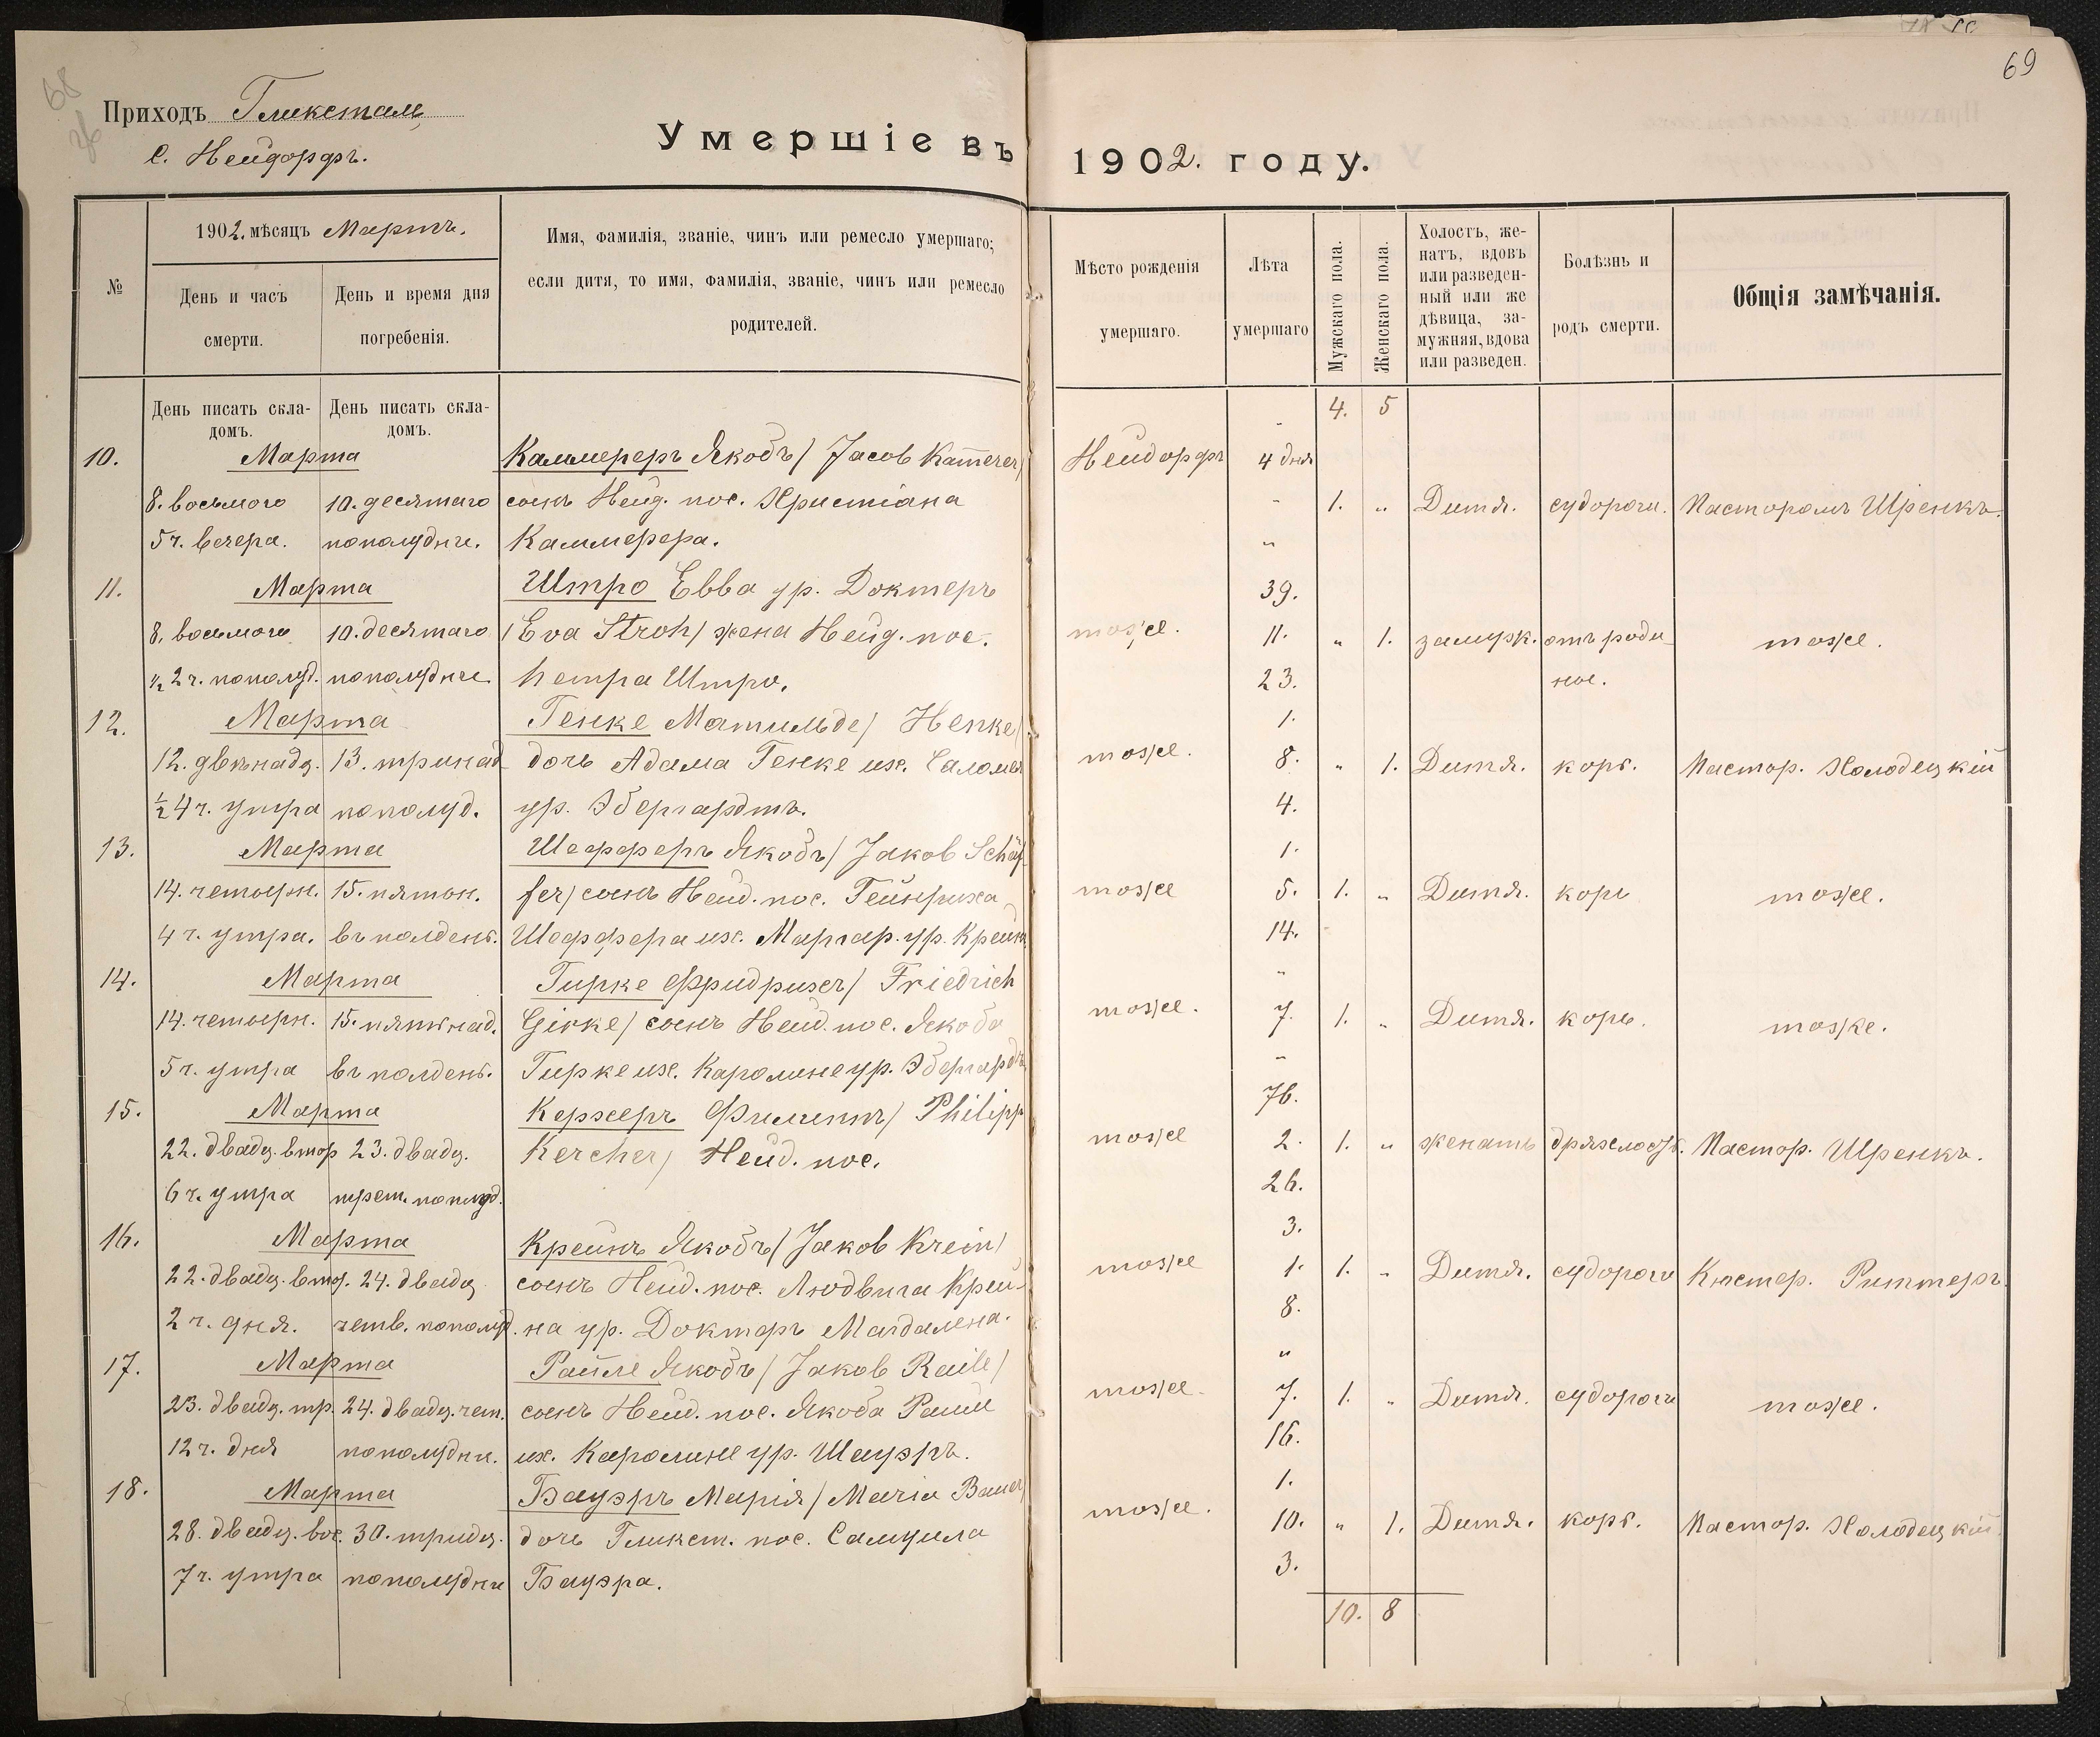 68
Приходъ Гликсталь
с. Нейдорфъ.
Умершіе въ
№
1902. мѣсяцъ Мартъ.
День и часъ смерти.
День и время дня погребенія.
Имя, фамилія, званіе, чинъ или ремесло умершаго;
если дитя, то имя, фамилія, званіе, чинъ или ремесло
родителей.
День писать скла-
домъ.
День писать скла-
домъ.
10. Марта Каммереръ Якобъ / Jacob Kamerer /
8. восьмого 10. десятаго сынъ Нейд. пос. Христіана
5 ч. вечера. пополудни. Каммерера.
11. Марта Штро Евва ур. Доктеръ
8. восьмого 10. десятаго / Eva Stroh / жена Нейд. пос.
½ 2 ч. пополуд. пополудни Петра Штро.
12. Марта Генке Матильде / Henke /
12. двѣнадц. 13. тринад дочь Адама Генке иж. Саломея
½ 4 ч. утра пополуд. ур. Эбергардтъ.
13. Марта Шефферъ Якобъ / Jakob Schäf-
14. четырн. 15. пятон. fer / сынъ Нейд. пос. Гейнриха
4 ч. утра. въ полдень. Шеффера иж. Маргар. ур. Крейнъ
14. Марта Гирке Фридрихъ / Friedrich
14. четырн. 15. пятьнад. Girke / сынъ Нейд. пос. Якоба
5 ч. утра въ полдень. Гирке иж. Каролине ур. Эбергардъ
15. Марта Керхеръ Филиппъ / Philipp
22. двадц. втор 23. двадц. Kercher / Нейд. пос.
6 ч. утра трет. пополуд.
16. Марта Крейнъ Якобъ / Jakob Krein /
22. двадц. втор. 24. двадц сынъ Нейд. пос. Людвига Крей-
2 ч. дня. четв. пополуд. на ур. Доктеръ Магдалена.
17. Марта Райле Якобъ / Jakob Raile /
23. двадц. тр. 24. двадц. чет. сынъ Нейд. пос. Якоба Райле
12 ч. дня пополудни. иж. Каролине ур. Шауэръ.
18. Марта Бауэръ Марія / Maria Bauer /
28. двадц. вос. 30. тридц. дочь Гликст. пос. Самуила
7 ч. утра пополудни Бауэра.
69
1902. году.
Мѣсто рожденія
умершаго.
Лѣта
умершаго
Мужскаго пола.
Женскаго пола.
Холостъ, же-
натъ, вдовъ
или разведен-
ный или же
дѣвица, за-
мужняя, вдова
или разведен.
Болѣзнь и
родъ смерти.
Общія замѣчанія.
4. 5
Нейдорфъ 4 дня
- 1. " Дитя. судороги. Пасторомъ Шренкъ.
"
39.
тоже. 11. " 1. замуж. отъ роди-
тоже.
23. ное.
1.
тоже. 8. " 1. Дитя. корь. Пастор. Холодецкій
4.
1.
тоже 5. 1. " Дитя. корь тоже.
14.
"
тоже. 7. 1. " Дитя. корь. тоже.
"
76.
тоже 2. 1. " женатъ дряхлость. Пастор. Шренкъ.
26.
3.
тоже 1. 1. " Дитя. судороги Кюстер. Риттеръ.
8.
"
тоже. 7. 1. " Дитя. судороги тоже.
16.
1.
тоже. 10. " 1. Дитя. корь. Пастор. Холодецкій.
3.
10. 8